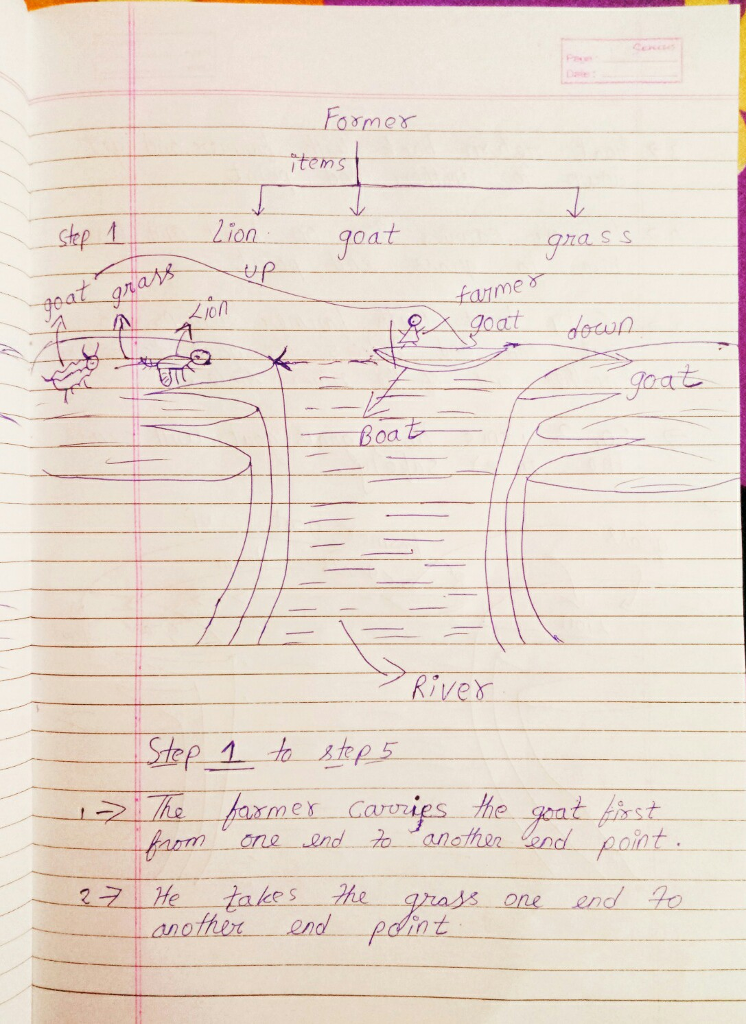 Page:
Date:
Former
items
Lion goat grass
Step 1
goat grass UP
Lion
farmer
goat down
goat
Boat
River
Step 1 to step 5
1→ The farmer carries the goat first
from one end to another end point.
2→ He takes the grass one end to
another end point